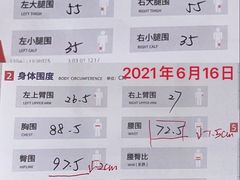 左大腿围 55 右大腿围 55
LEFT THIGH RIGHT THIGH
左小腿围 35 右小腿围 35
LEFT CALF RIGHT CALF
2 身体围度 BODY CIRCUMFERENCE
2021年6月16日
左上臂围 26.5 右上臂围 27
LEFT UPPER ARM RIGHT UPPER ARM
胸围 88.5 腰围 72.5 √1.5cm
CHEST WAIST
臀围 97.5 √2cm 腰臀比
HIPLINE